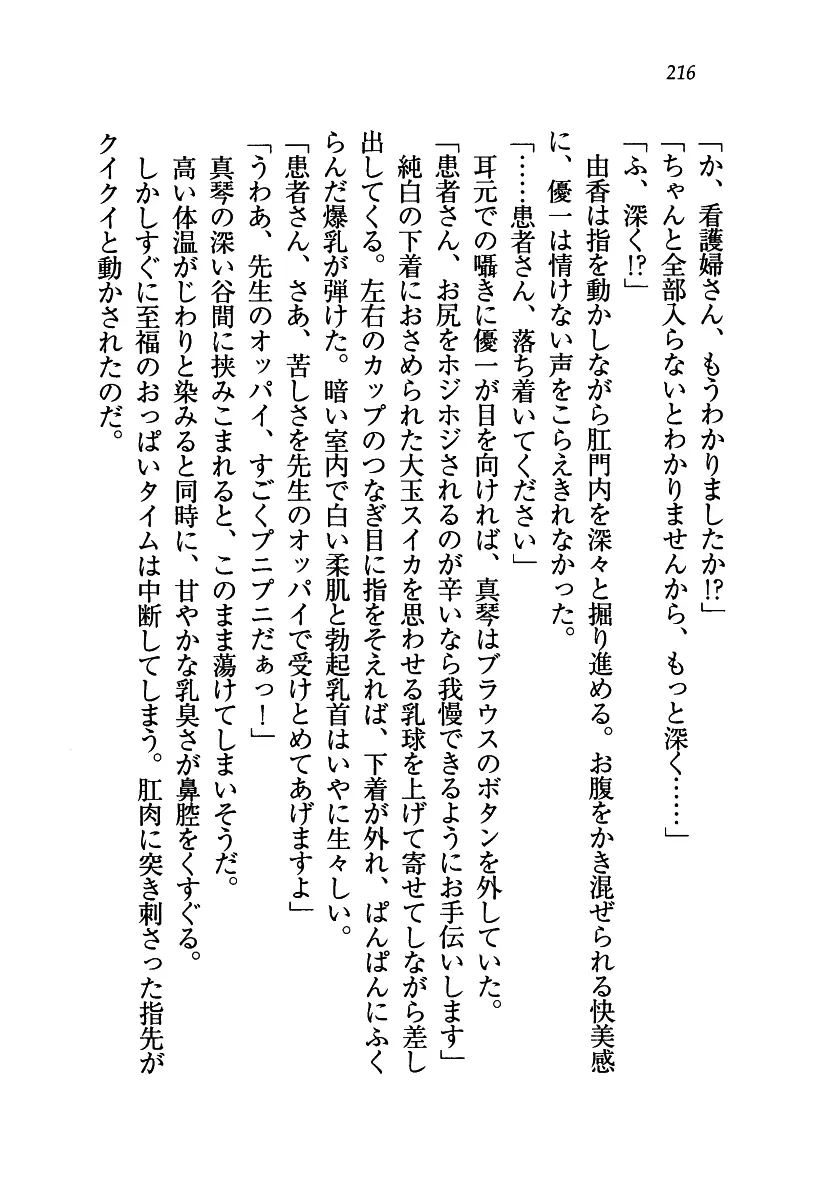 216
「か、看護婦さん、もうわかりましたか!?」
「ちゃんと全部入らないとわかりませんから、もっと深く……」
「ふ、深く!?」
由香は指を動かしながら肛門内を深々と掘り進める。お腹をかき混ぜられる快美感
に、優一は情けない声をこらえきれなかった。
「……患者さん、落ち着いてください」
耳元での囁きに優一が目を向ければ、真琴はブラウスのボタンを外していた。
「患者さん、お尻をホジホジされるのが辛いなら我慢できるようにお手伝いします」
純白の下着におさめられた大玉スイカを思わせる乳球を上げて寄せてしながら差し
出してくる。左右のカップのつなぎ目に指をそえれば、下着が外れ、ぱんぱんにふく
らんだ爆乳が弾けた。暗い室内で白い柔肌と勃起乳首はいやに生々しい。
「患者さん、さあ、苦しさを先生のオッパイで受けとめてあげますよ」
「うわあ、先生のオッパイ、すごくプニプニだぁっ！」
真琴の深い谷間に挟みこまれると、このまま蕩けてしまいそうだ。
高い体温がじわりと染みると同時に、甘やかな乳臭さが鼻腔をくすぐる。
しかしすぐに至福のおっぱいタイムは中断してしまう。肛肉に突き刺さった指先が
クイクイと動かされたのだ。